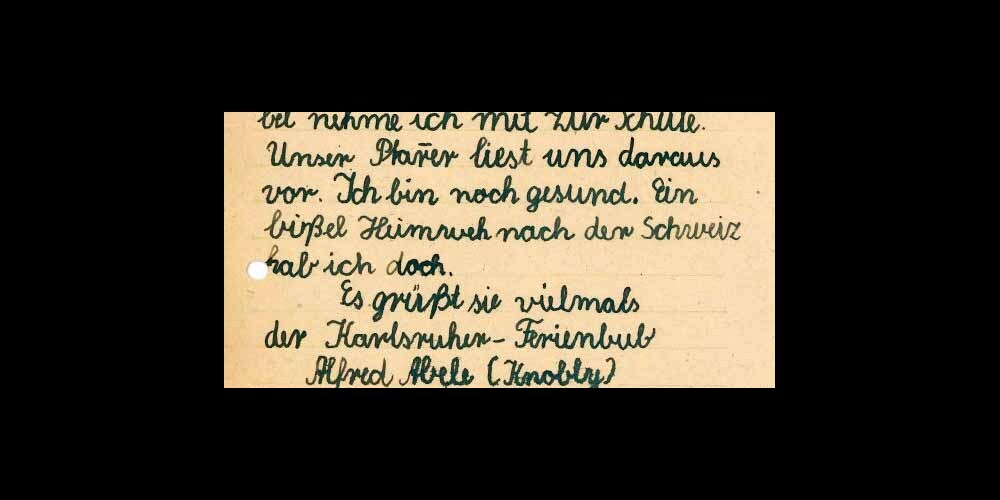 bel nehme ich mit zur Schule.
Unser Pfar̄er liest uns daraus
vor. Ich bin noch gesund. Ein
bißel Heimweh nach der Schweiz
hab ich doch.
Es grüßt sie vielmals
der Karlsruher-Ferienbub
Alfred Abele (Knobly)